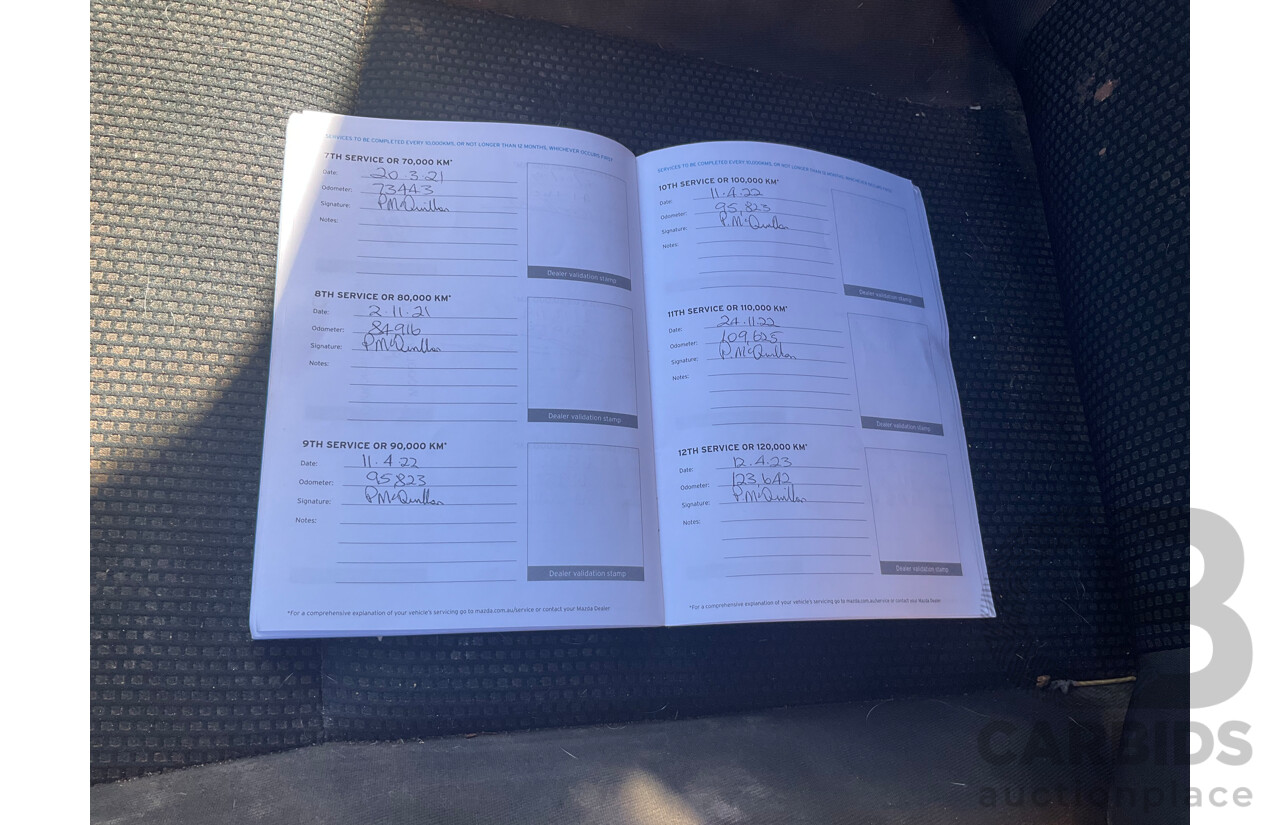 SERVICES TO BE COMPLETED EVERY 10,000KMS, OR NOT LONGER THAN 12 MONTHS, WHICHEVER OCCURS FIRST
7TH SERVICE OR 70,000 KM*
Date: 20.3.21
Odometer: 73443
Signature: P McQuillan
Notes:
Dealer validation stamp
8TH SERVICE OR 80,000 KM*
Date: 2.11.21
Odometer: 84916
Signature: P McQuillan
Notes:
Dealer validation stamp
9TH SERVICE OR 90,000 KM*
Date: 11.4.22
Odometer: 95823
Signature: P McQuillan
Notes:
Dealer validation stamp
*For a comprehensive explanation of your vehicle's servicing go to mazda.com.au/service or contact your Mazda Dealer
SERVICES TO BE COMPLETED EVERY 10,000KMS, OR NOT LONGER THAN 12 MONTHS, WHICHEVER OCCURS FIRST
10TH SERVICE OR 100,000 KM*
Date: 11.4.22
Odometer: 95,823
Signature: P. McQuillan
Notes:
Dealer validation stamp
11TH SERVICE OR 110,000 KM*
Date: 24.11.22
Odometer: 109,625
Signature: P. McQuillan
Notes:
Dealer validation stamp
12TH SERVICE OR 120,000 KM*
Date: 12.4.23
Odometer: 123,642
Signature: P. McQuillan
Notes:
Dealer validation stamp
*For a comprehensive explanation of your vehicle's servicing go to mazda.com.au/service or contact your Mazda Dealer
CARBIDS
auctionplace